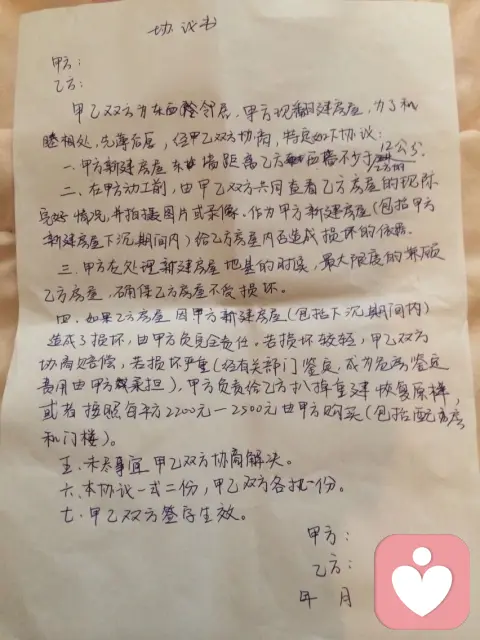 协议书
甲方:
乙方:
甲乙双方为东西邻居,甲方现翻建房屋,为了和
睦相处,先薄后厚,经甲乙双方协商,特定如下协议:
一、甲方新建房屋东墙距离乙方西墙不少于12公分
二、在甲方动工前,由甲乙双方共同查看乙方房屋的现际
完好情况,并拍摄图片或录像。作为甲方新建房屋(包括甲方
新建房屋下沉期间内)给乙方房屋内否造成损坏的依据。
三、甲方在处理新建房屋地基的时候,最大限度的兼顾
乙方房屋,确保乙方房屋不受损坏。
四、如果乙方房屋因甲方新建房屋(包括下沉期间内)
造成了损坏,由甲方负完全责任。若损坏较轻,甲乙双方
协商赔偿,若损坏严重(经有关部门鉴定,成为危房鉴定
费用由甲方承担),甲方负责给乙方扒掉重建恢复原样,
或者按照每平方2200元—2500元由甲方购买(包括配房
和门楼)。
五、未尽事宜甲乙双方协商解决。
六、本协议一式二份,甲乙双方各执一份。
七、甲乙双方签字生效。
甲方:
乙方:
年 月